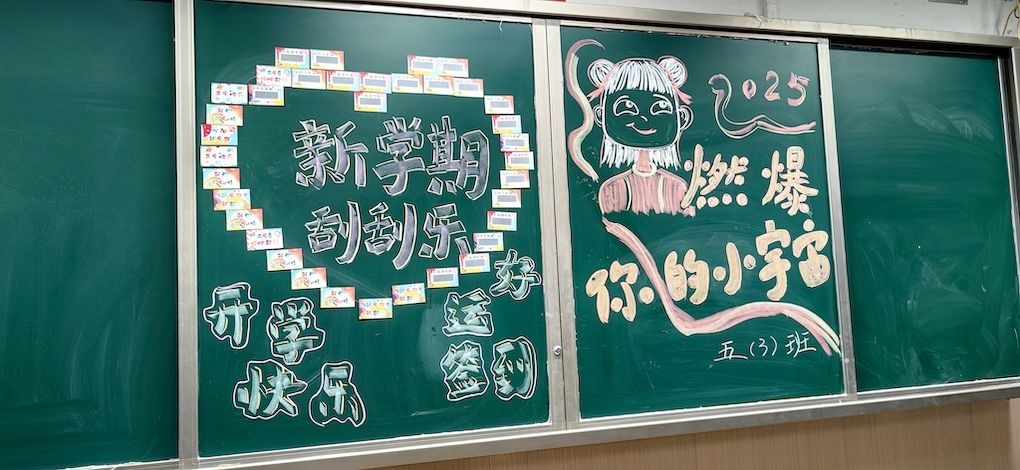 新学期
刮刮乐
开学
快乐
好运
签到
2025
燃爆
你的小宇宙
五(3)班